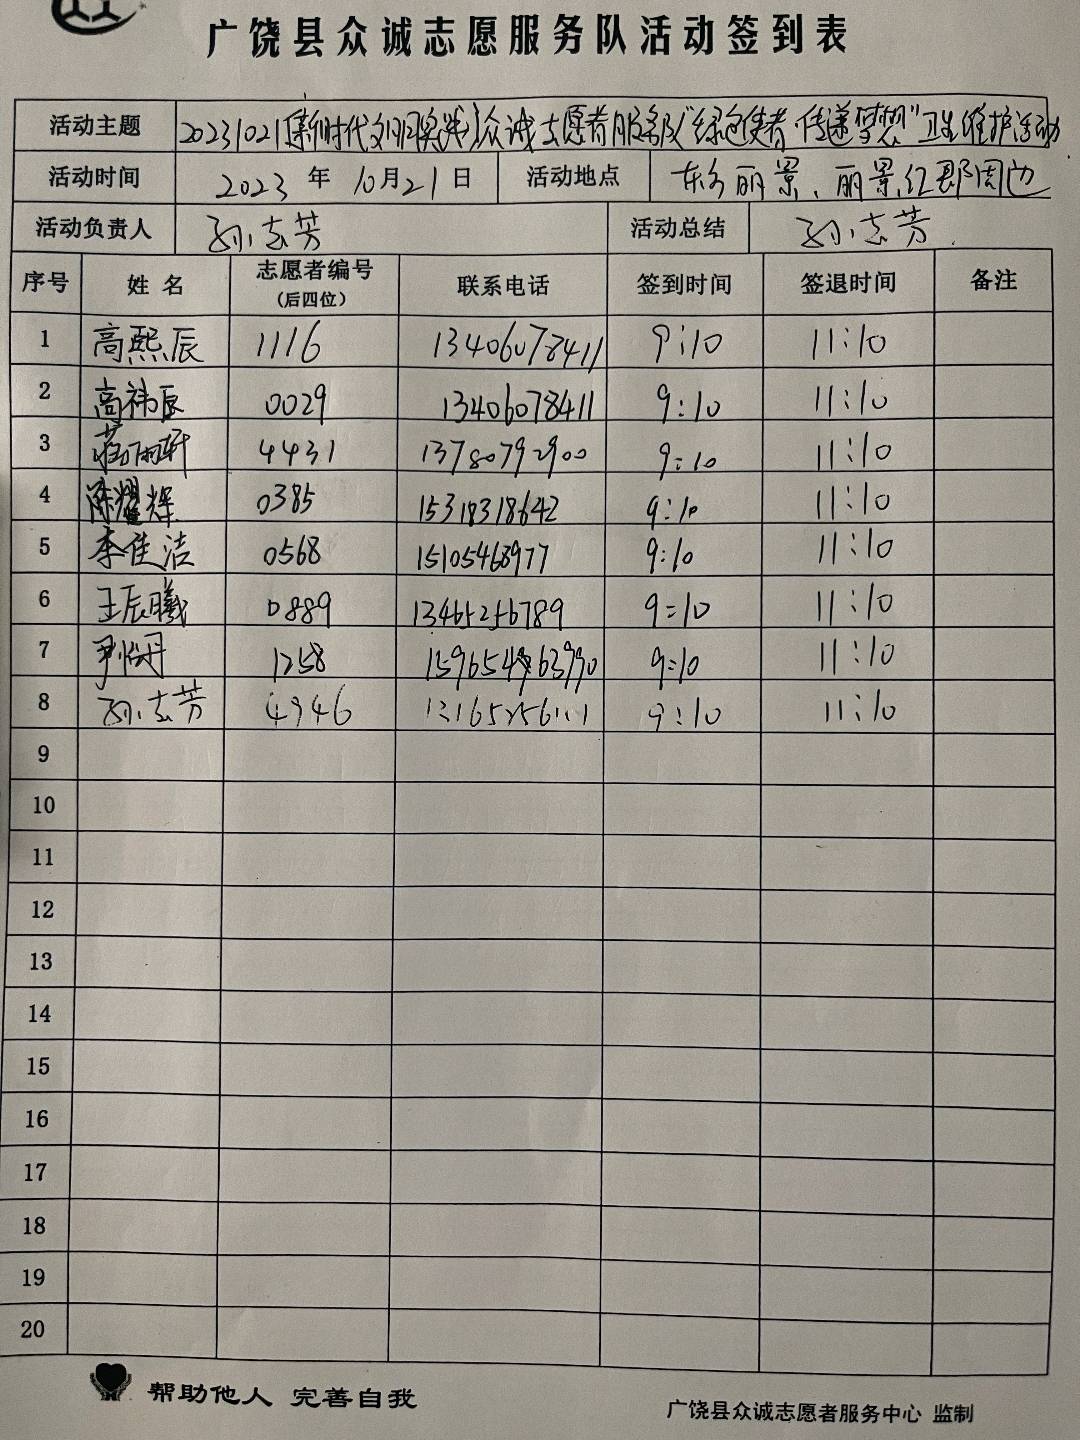 广饶县众诚志愿服务队活动签到表
活动主题 20231021(新时代文明实践)众诚志愿者服务队"绿色使者 传递梦想"卫生维护活动
活动时间 2023 年 10月21日 活动地点 东方丽景、丽景红郡周边
活动负责人 孙志芳 活动总结 孙志芳
序号 姓名 志愿者编号 联系电话 签到时间 签退时间 备注
(后四位)
1 高熙辰 1116 13406078411 9:10 11:10
2 高祎辰 0029 13406078411 9:10 11:10
3 雨轩 4431 13780792900 9:10 11:10
4 陈耀辉 0385 15318318642 9:10 11:10
5 李佳洁 0568 15105468977 9:10 11:10
6 王辰曦 0889 13465256789 9:10 11:10
7 尹 丹 1258 9:10 11:10
8 孙志芳 4946 9:10 11:10
9
10
11
12
13
14
15
16
17
18
19
20
帮助他人 完善自我
广饶县众诚志愿者服务中心 监制